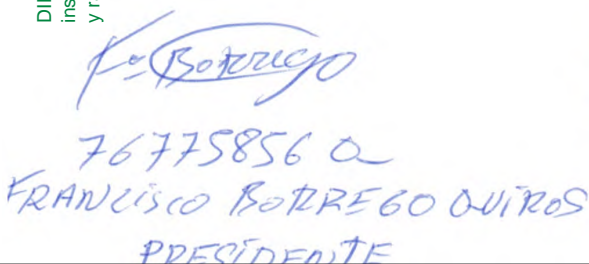 DII
ins
y r
Fº Borrego
76775856 Q
FRANCISCO BORREGO QUIROS
PRESIDENTE